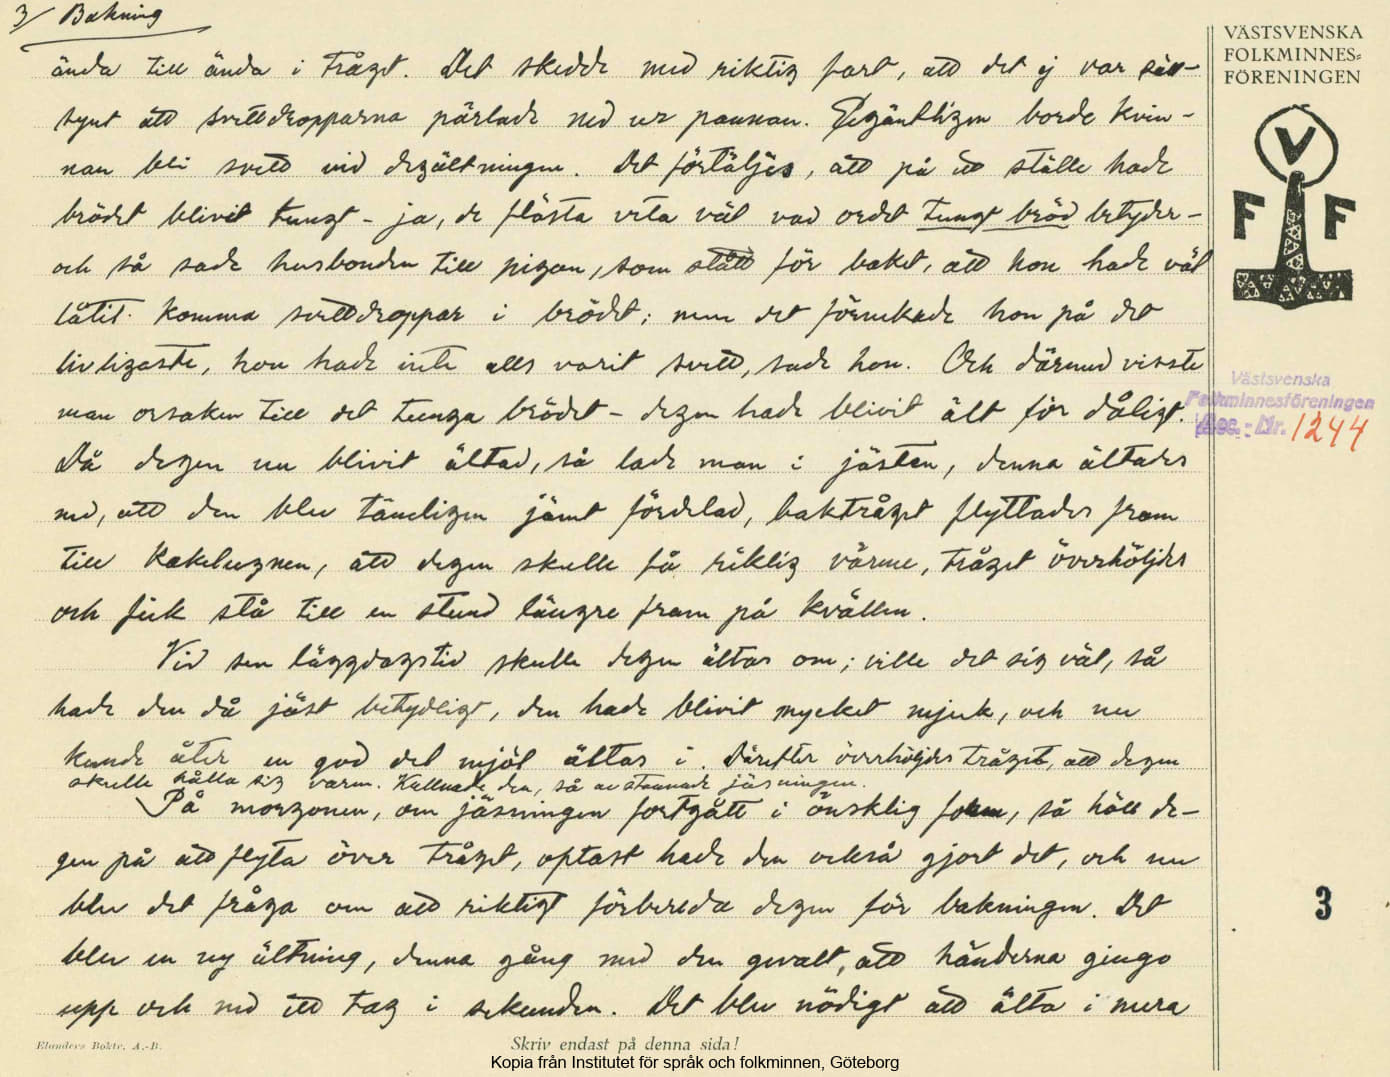 3/ Bakning
ända till ända i tråget. Det skedde med riktig fart, att det ej var säll-
synt att svettdropparna pärlade ned ur pannan. Egäntligen borde kvin-
nan bli svett vid degältningen. Det förtäljes, att på ett ställe hade
brödet blivit tungt - ja, de flästa veta väl vad ordet tungt bröd betyder -
och så sade husbonden till pigan, som stått för baket, att hon hade väl
låtit komma svettdroppar i brödet; men det förnekade hon på det
livligaste, hon hade inte alls varit svett, sade hon. Och därmed visste
man orsaken till det tunga brödet - degen hade blivit ält för dåligt.
Då degen nu blivit ältad, så lade man i jästen, denna ältades
ned, att den blev tämeligen jämt fördelad, baktråget flyttades fram
till kakelugnen, att degen skulle få riklig värme, tråget överhöljdes
och fick stå till en stund längre fram på kvällen.
Vid sen läggdagstid skulle degen ältas om; ville det sig väl, så
hade den då jäst betydligt, den hade blivit mycket mjuk, och nu
kunde åter en god del mjöl ältas i. Därefter överhöljdes tråget, att degen
skulle hålla sig varm. Kallnade den, så avstannade jäsningen.
På morgonen, om jäsningen fortgått i önsklig form, så höll de-
gen på att flyta över tråget, optast hade den också gjort det, och nu
blev det fråga om att riktigt förbereda degen för bakningen. Det
blev en ny ältning, denna gång med den gevalt, att händerna gingo
upp och ned ett tag i sekunden. Det blev nödigt att älta i mera
Elanders Boktr. A.-B.
Skriv endast på denna sida!
Kopia från Institutet för språk och folkminnen, Göteborg
VÄSTSVENSKA
FOLKMINNES=
FÖRENINGEN
V
F F
Västsvenska
Folkminnesföreningen
Acc.-Nr. 1244
3